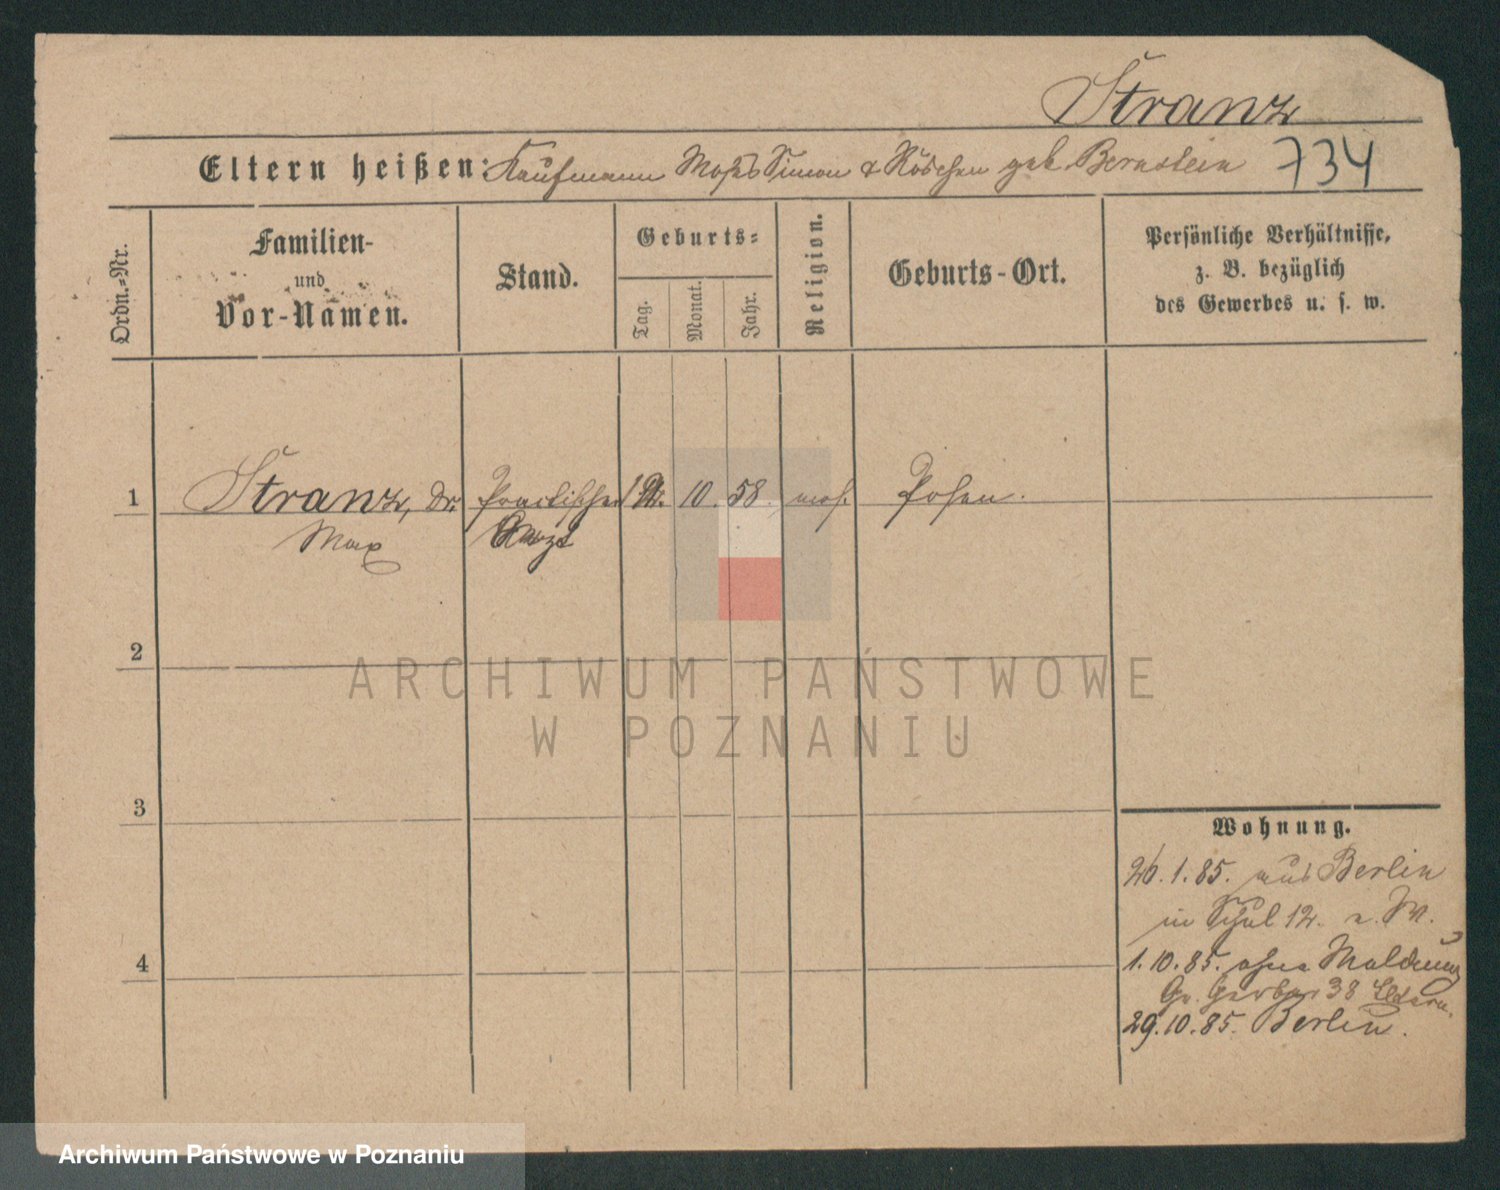 Stranz
Eltern heißen: Kaufmann Moses Simon & Röschen geb. Bernstein 734
Ordn.-Nr.
Familien-
und
Vor-Namen.
Stand.
Geburts-
Tag.
Monat.
Jahr.
Religion.
Geburts-Ort.
Persönliche Verhältnisse,
z. B. bezüglich
des Gewerbes u. s. w.
1 Stranz, Dr. practischer 10. 58. mos. Posen.
Max Arzt
2
3
4
ARCHIWUM PAŃSTWOWE
W POZNANIU
Wohnung.
26.1.85. aus Berlin
in Schul 12.
1.10.85. ohne Meldung
Gr. Gerber 38 Eltern.
29.10.85. Berlin.
Archiwum Państwowe w Poznaniu